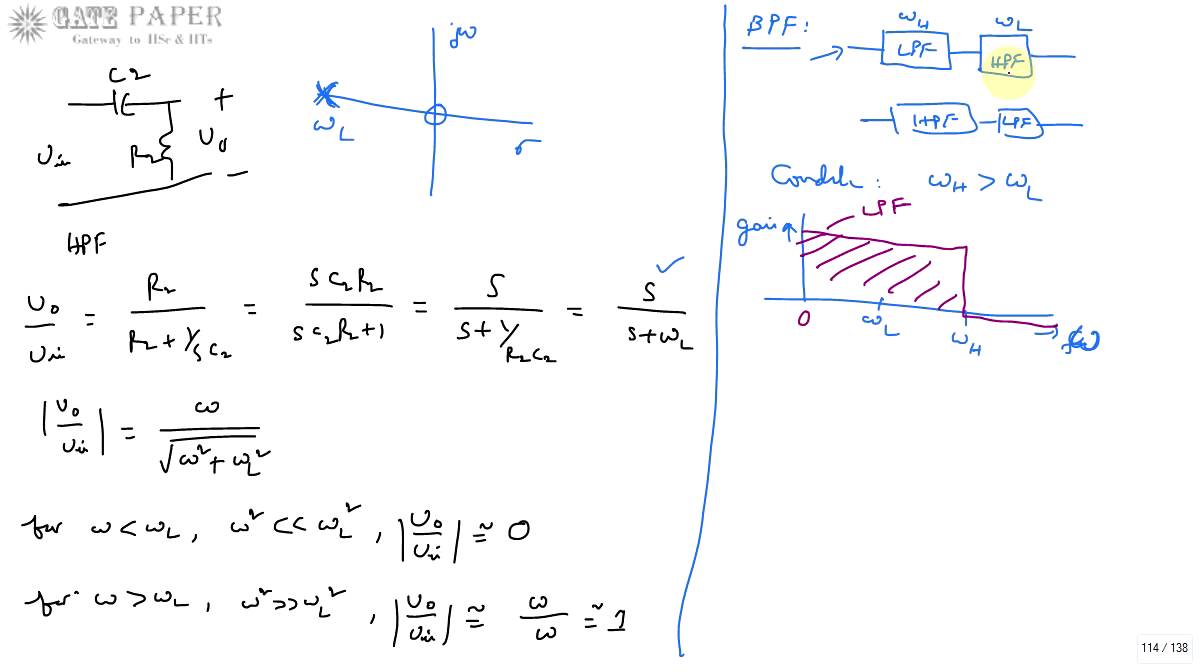 GATE PAPER
Gateway to IISc & IITs
C2
Vin
R2
+
Vo
−
HPF
jω
ωL
σ
Vo/Vin = R2/(R2 + 1/sC2) = sC2R2/(sC2R2+1) = s/(s + 1/R2C2) = s/(s+ωL) ✓
|Vo/Vin| = ω/√(ω² + ωL²)
for ω < ωL, ω² << ωL², |Vo/Vin| ≈ 0
for ω > ωL, ω² >> ωL², |Vo/Vin| ≈ ω/ω ≈ 1
BPF:
ωH ωL
LPF HPF
HPF LPF
ωH > ωL
LPF
gain ↑
0 ωL ωH
114 / 138